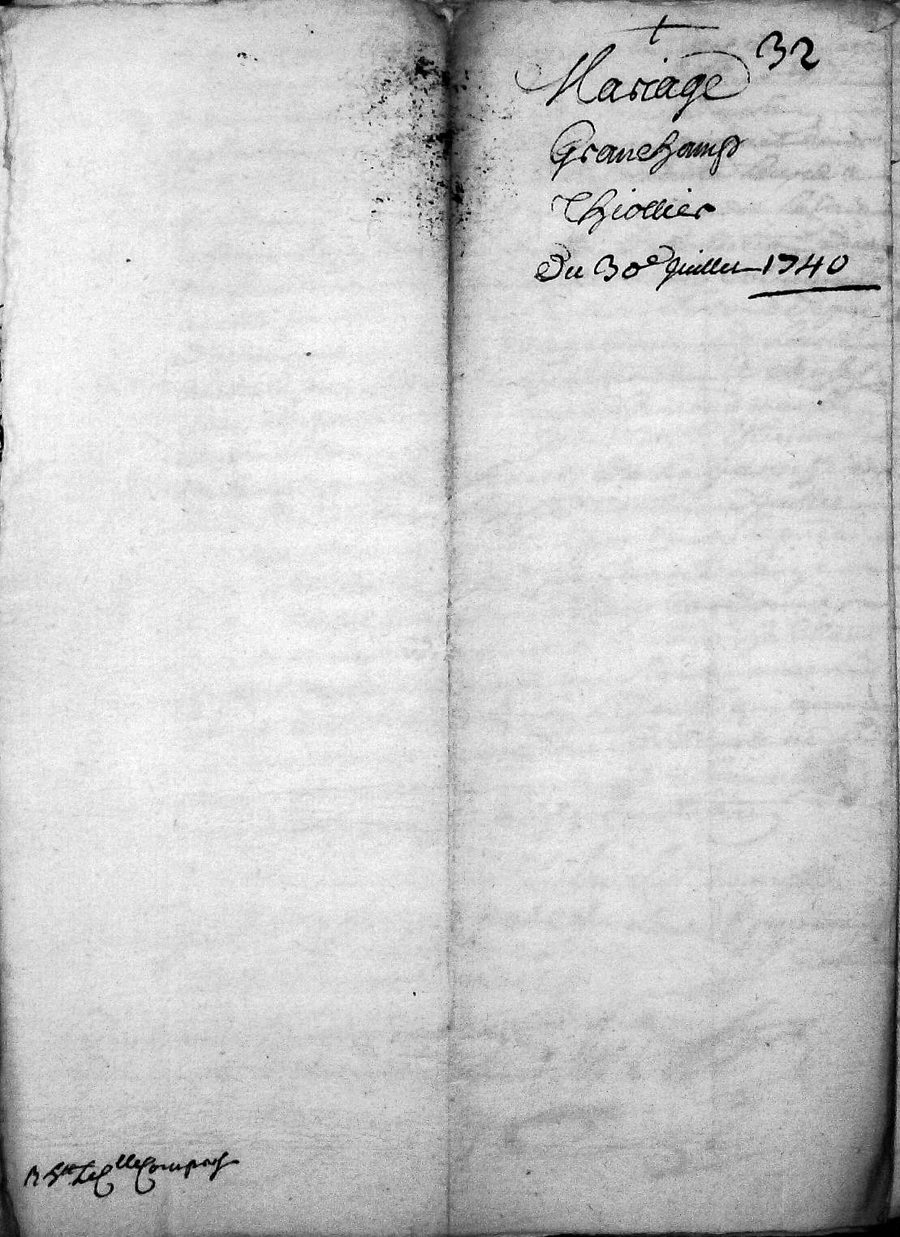 32
Mariage
Granchamp
Thiollier
Du 30e Juillet 1740